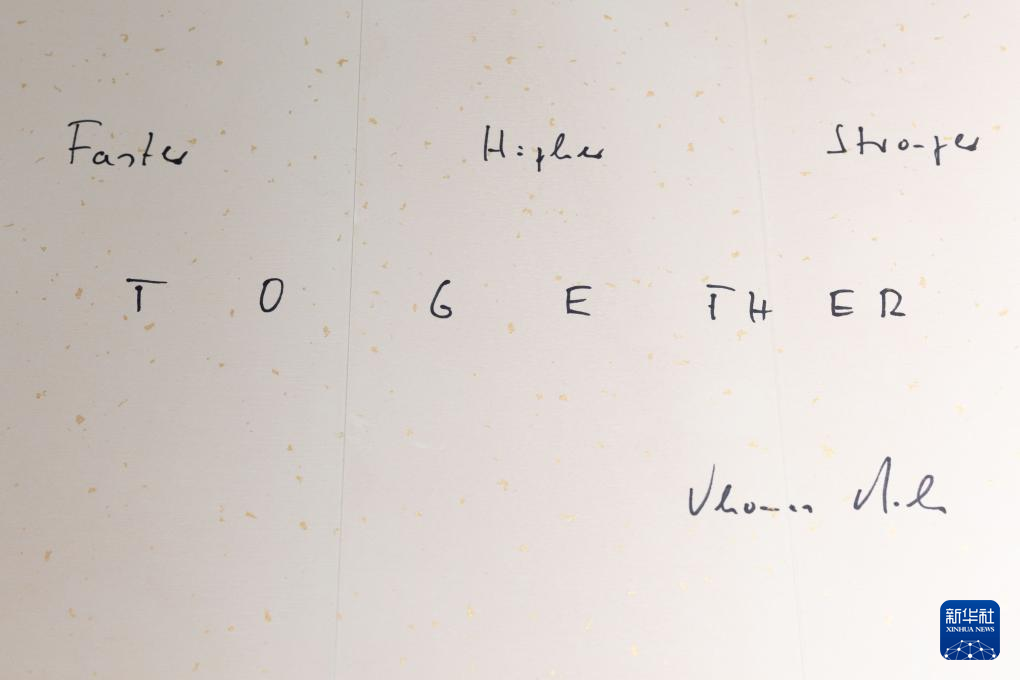 Faster Higher Stronger
TOGETHER
Thomas Bach
新华社
XINHUA NEWS